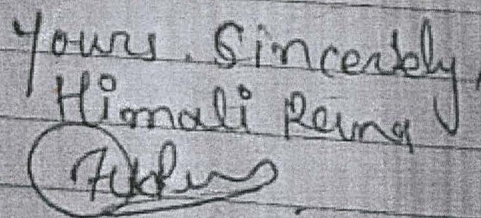 Yours. Sincerely,
Himali Rana